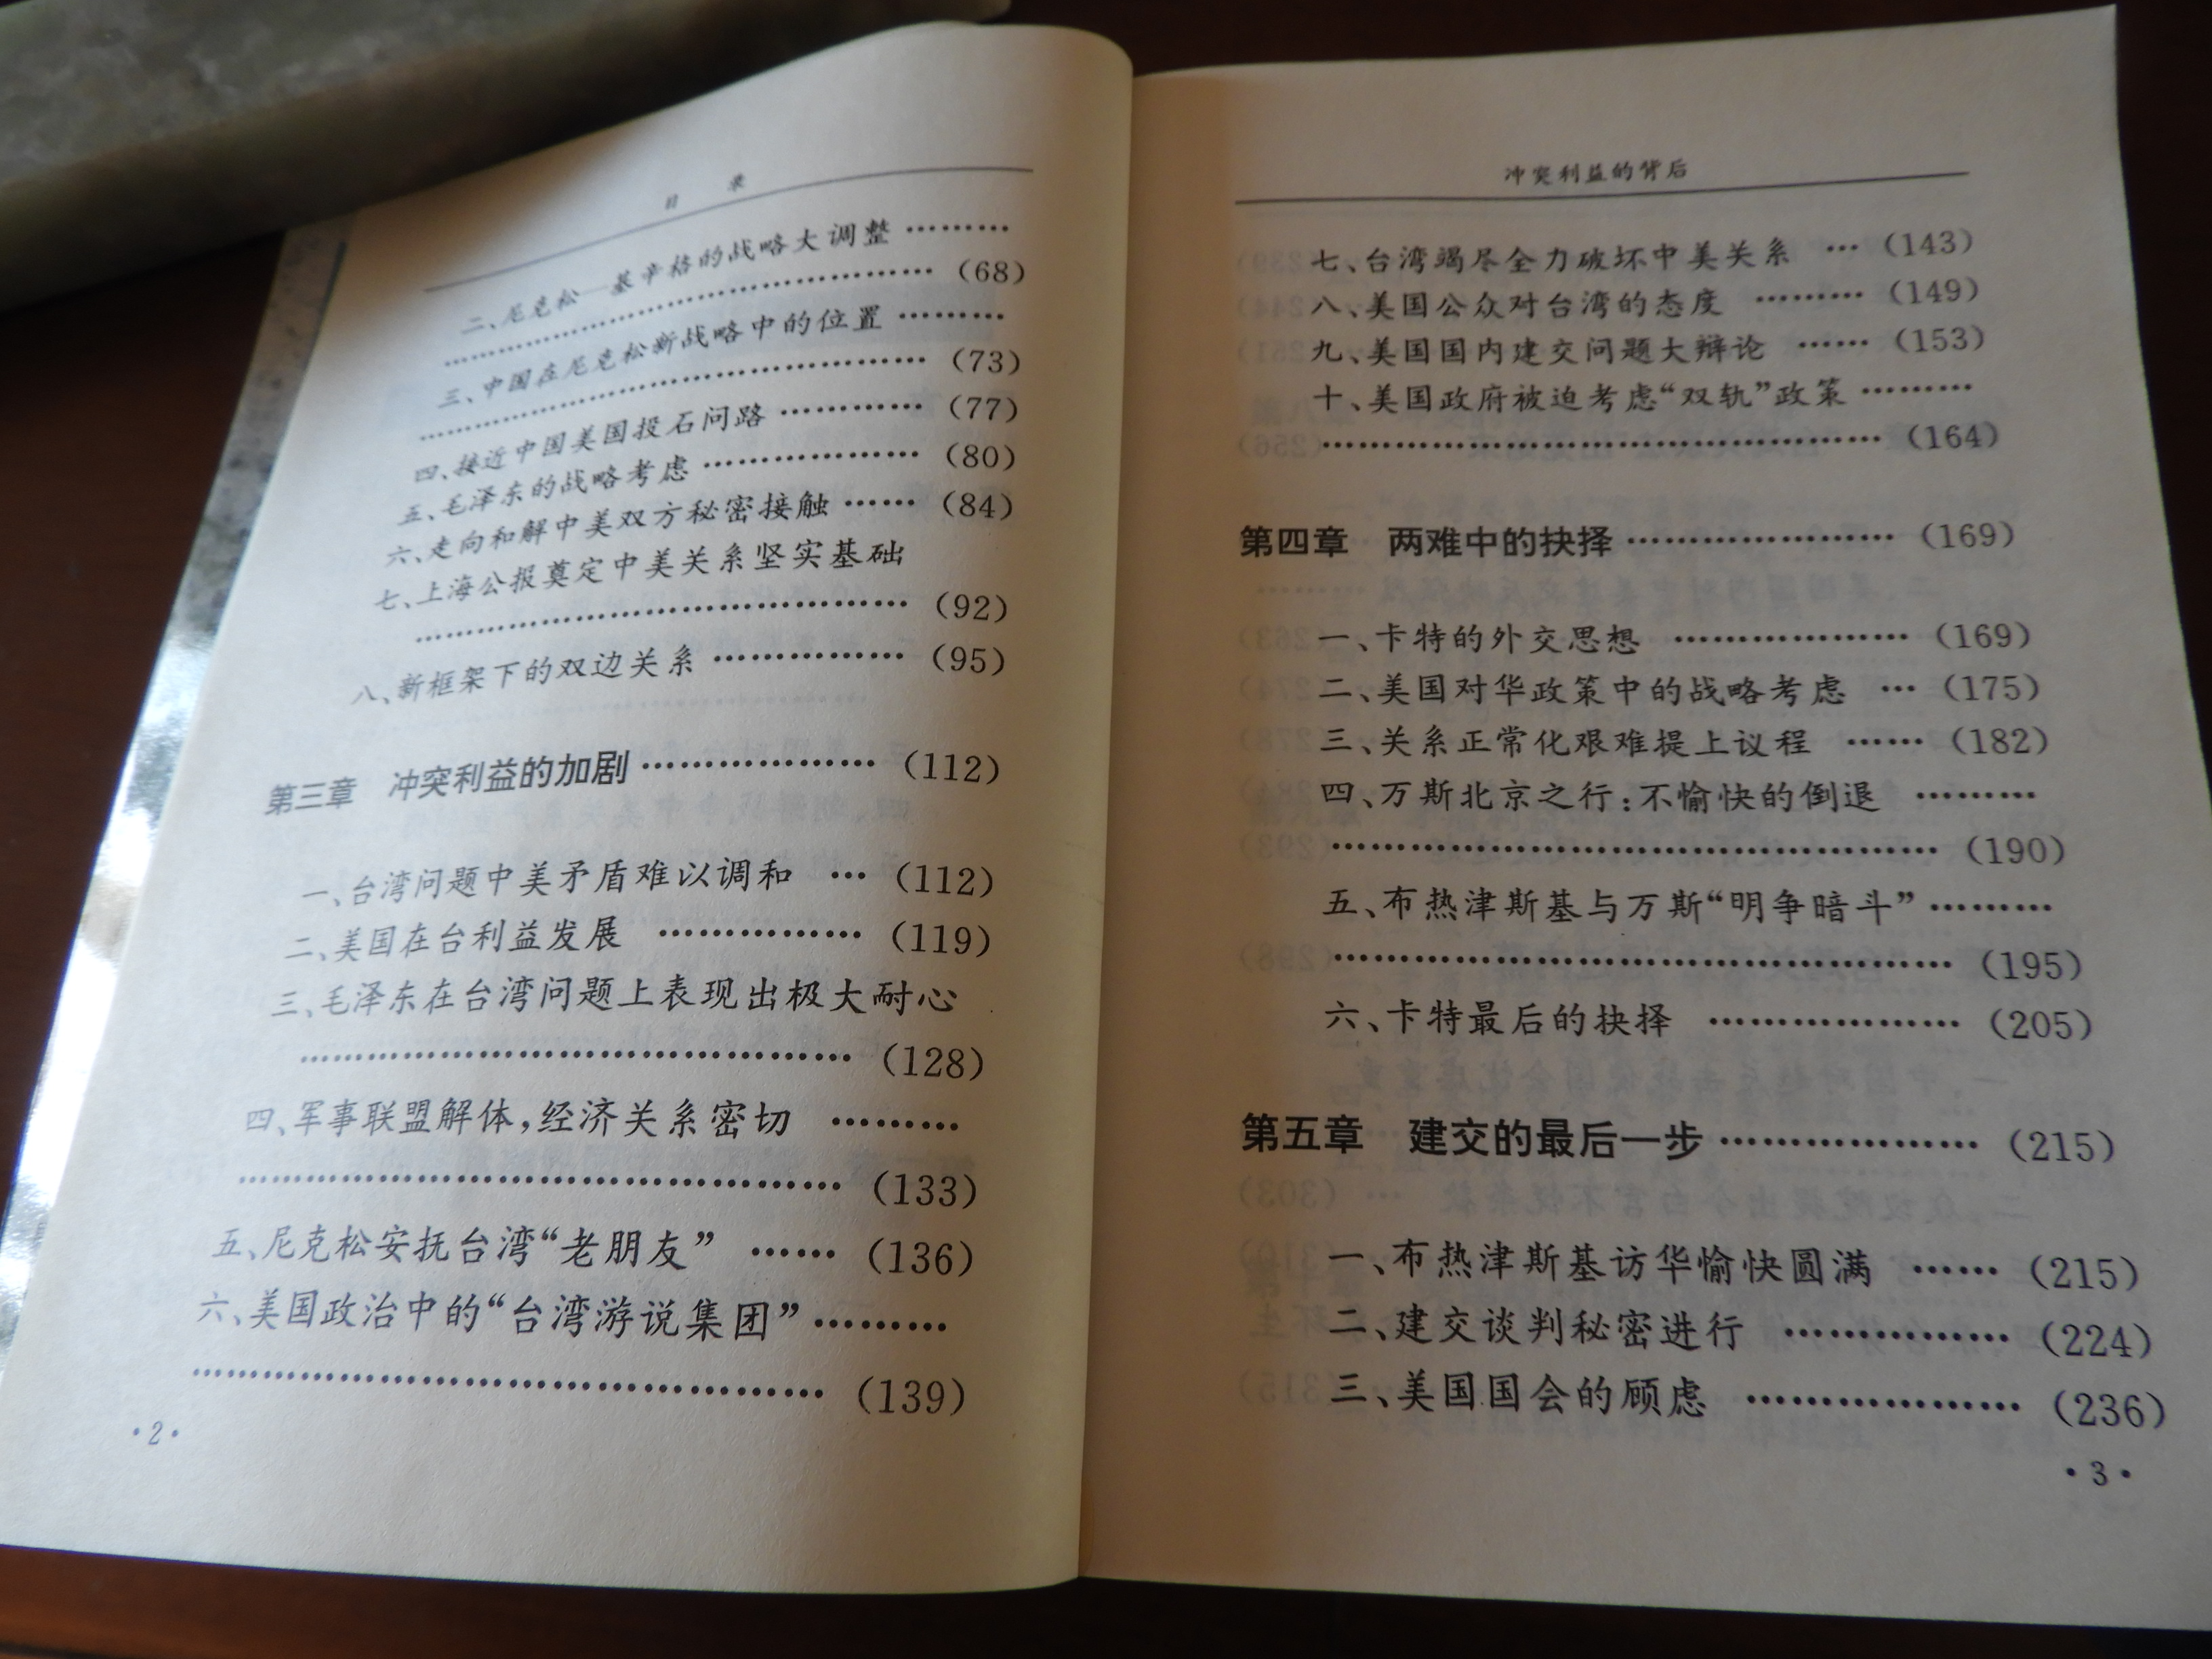 目 录
二、尼克松—基辛格的战略大调整 ………
…………………………………… (68)
三、中国在尼克松新战略中的位置 ………
…………………………………… (73)
四、接近中国美国投石问路 ………… (77)
五、毛泽东的战略考虑 ……………… (80)
六、走向和解中美双方秘密接触 …… (84)
七、上海公报奠定中美关系坚实基础
…………………………………… (92)
八、新框架下的双边关系 …………… (95)
第三章 冲突利益的加剧 ………………… (112)
一、台湾问题中美矛盾难以调和 … (112)
二、美国在台利益发展 …………… (119)
三、毛泽东在台湾问题上表现出极大耐心
…………………………………… (128)
四、军事联盟解体,经济关系密切 ………
…………………………………… (133)
五、尼克松安抚台湾“老朋友” …… (136)
六、美国政治中的“台湾游说集团” ………
…………………………………… (139)
·2·
冲突利益的背后
七、台湾竭尽全力破坏中美关系 … (143)
八、美国公众对台湾的态度 ……… (149)
九、美国国内建交问题大辩论 …… (153)
十、美国政府被迫考虑“双轨”政策 ………
…………………………………… (164)
第四章 两难中的抉择 ………………… (169)
一、卡特的外交思想 ……………… (169)
二、美国对华政策中的战略考虑 … (175)
三、关系正常化艰难提上议程 …… (182)
四、万斯北京之行:不愉快的倒退 ………
…………………………………… (190)
五、布热津斯基与万斯“明争暗斗” ………
…………………………………… (195)
六、卡特最后的抉择 ……………… (205)
第五章 建交的最后一步 ……………… (215)
一、布热津斯基访华愉快圆满 …… (215)
二、建交谈判秘密进行 …………… (224)
三、美国国会的顾虑 ……………… (236)
·3·